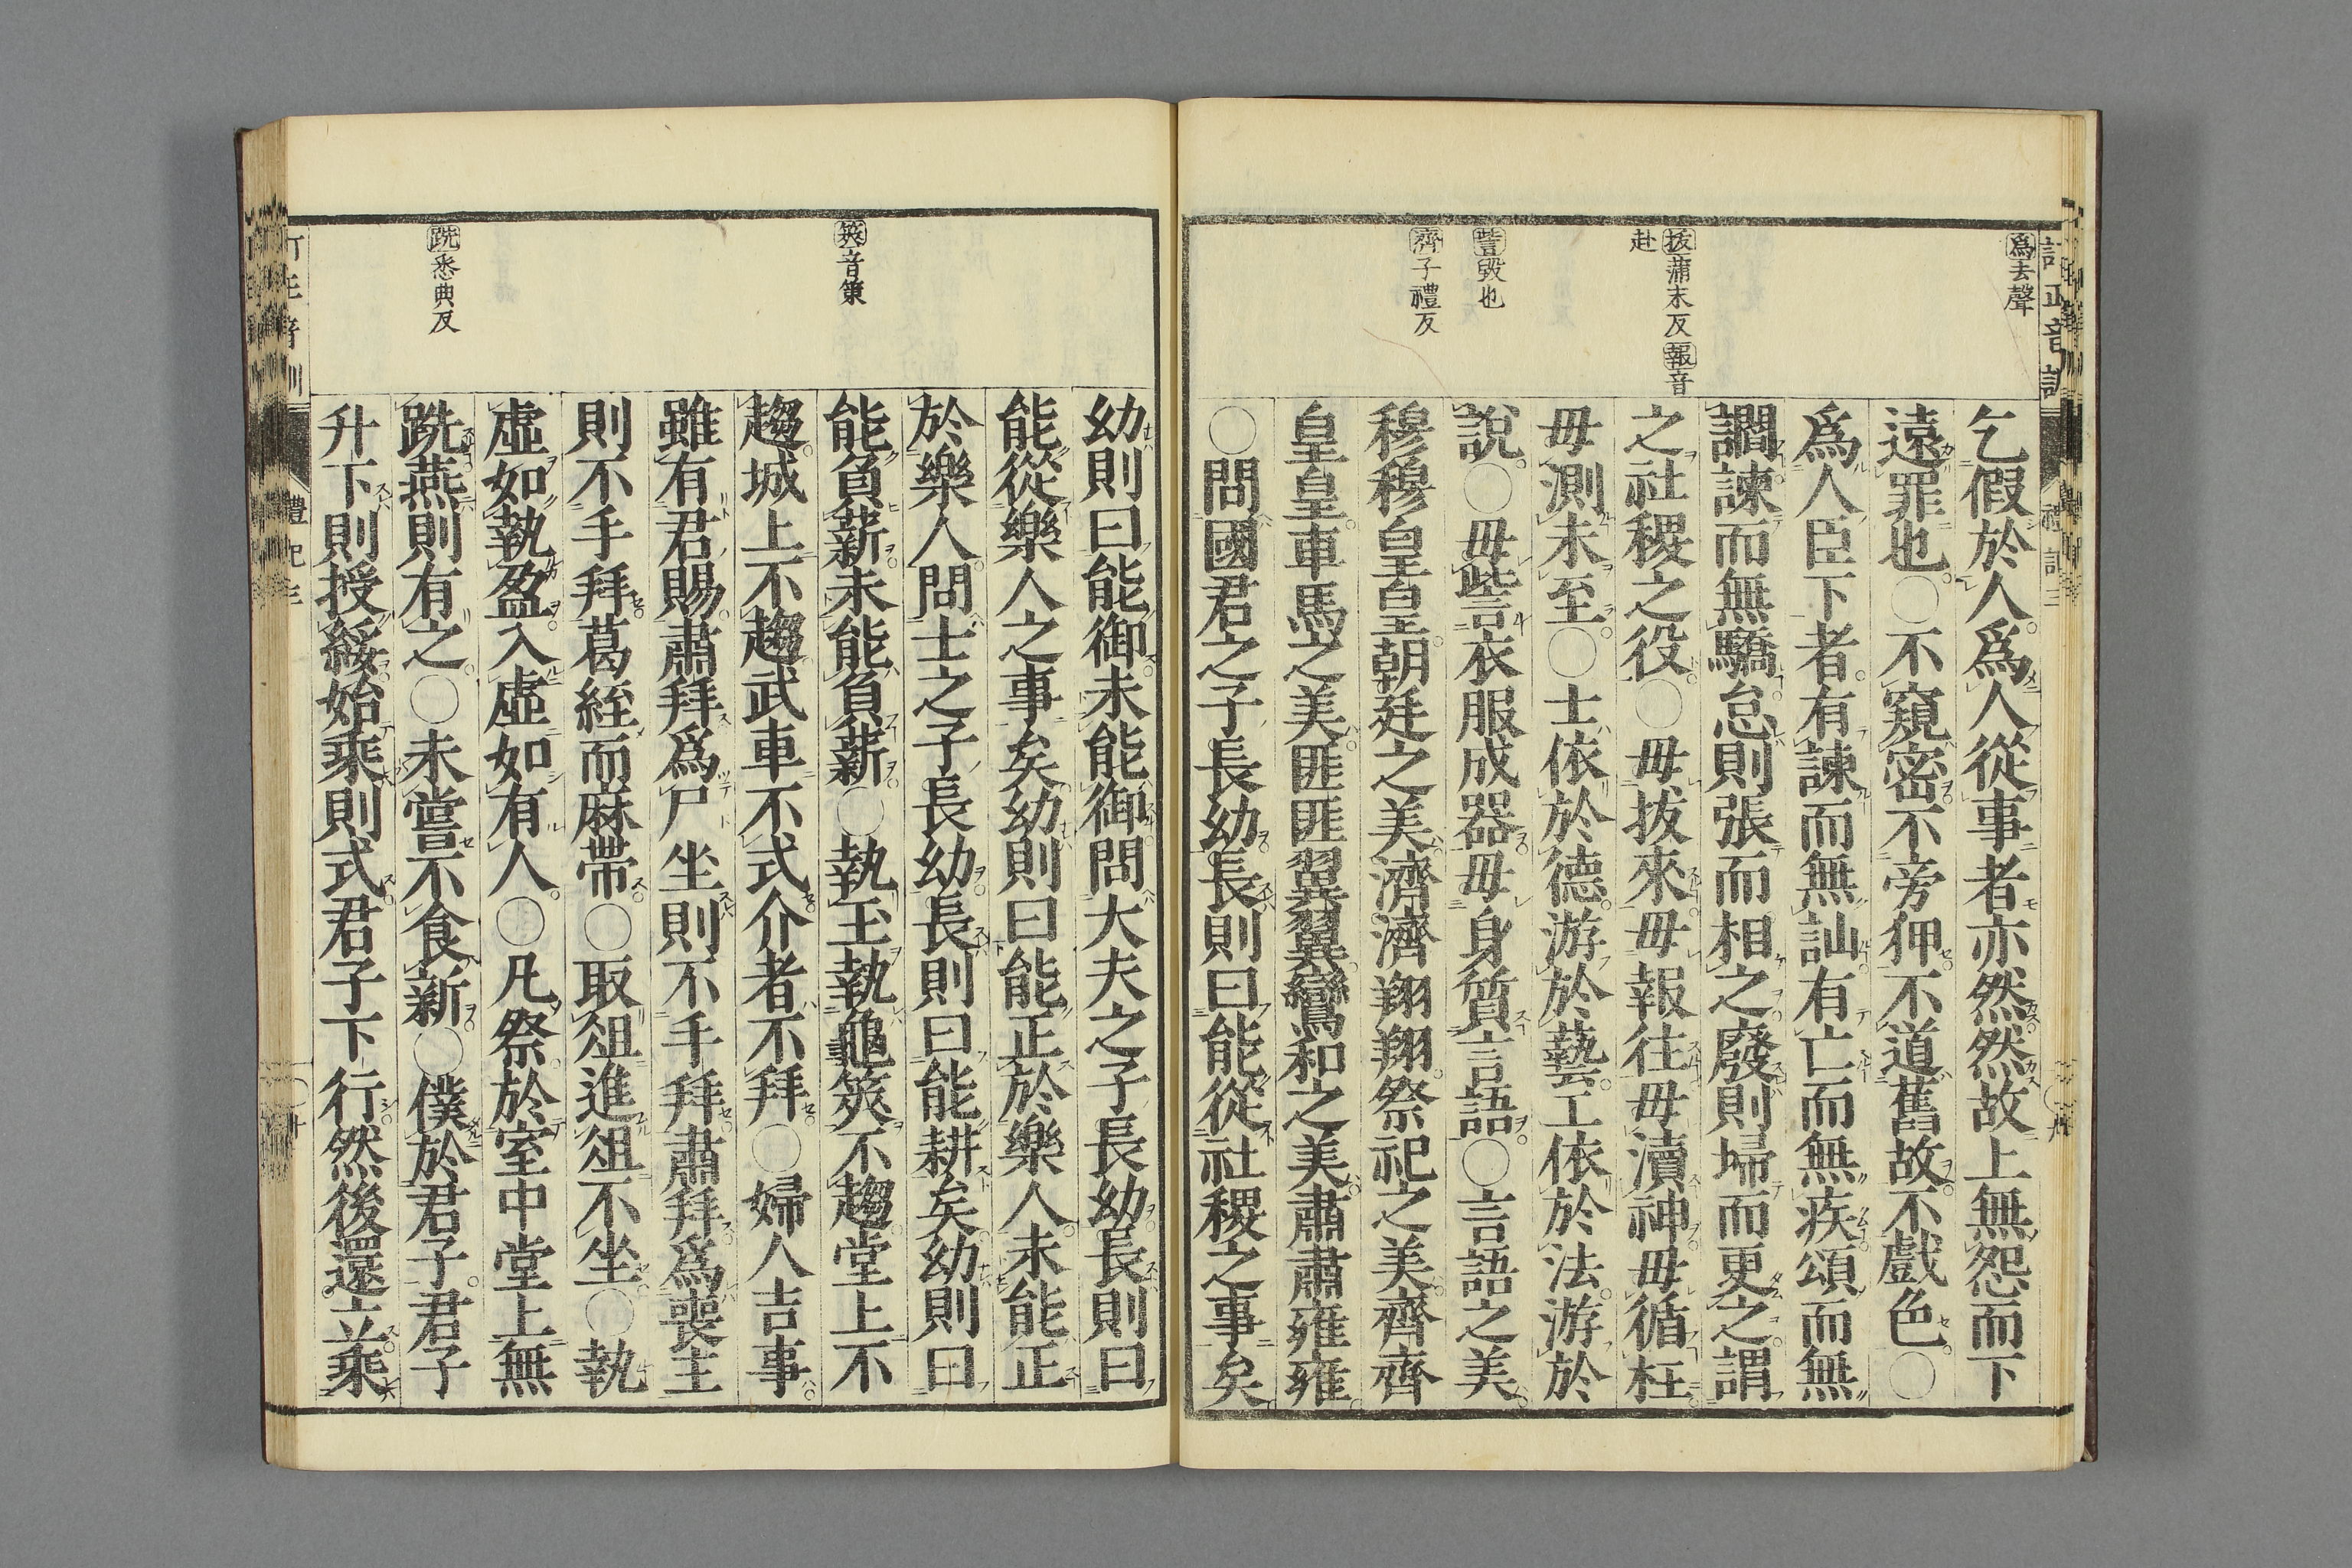 爲去聲
拔蒲末反報音
赴
訾毀也
齊子禮反
乞假於人爲人從事者亦然然故上無怨而下
遠罪也○不窺密不旁狎不道舊故不戲色○
爲人臣下者有諫而無訕有亡而無疾頌而無
讇諫而無驕怠則張而相之廢則埽而更之謂
之社稷之役○毋拔來毋報往毋瀆神毋循枉
毋測未至○士依於德游於藝工依於法游於
說○毋訾衣服成器毋身質言語○言語之美
穆穆皇皇朝廷之美濟濟翔翔祭祀之美齊齊
皇皇車馬之美匪匪翼翼鸞和之美肅肅雍雍
○問國君之子長幼長則曰能從社稷之事矣
筴音策
跣悉典反
幼則曰能御未能御問大夫之子長幼長則曰
能從樂人之事矣幼則曰能正於樂人未能正
於樂人問士之子長幼長則曰能耕矣幼則曰
能負薪未能負薪○執玉執龜筴不趨堂上不
趨城上不趨武車不式介者不拜○婦人吉事
雖有君賜肅拜爲尸坐則不手拜肅拜爲喪主
則不手拜葛絰而麻帶○取俎進俎不坐○執
虛如執盈入虛如有人○凡祭於室中堂上無
跣燕則有之○未嘗不食新○僕於君子君子
升下則授綏始乘則式君子下行然後還立乘